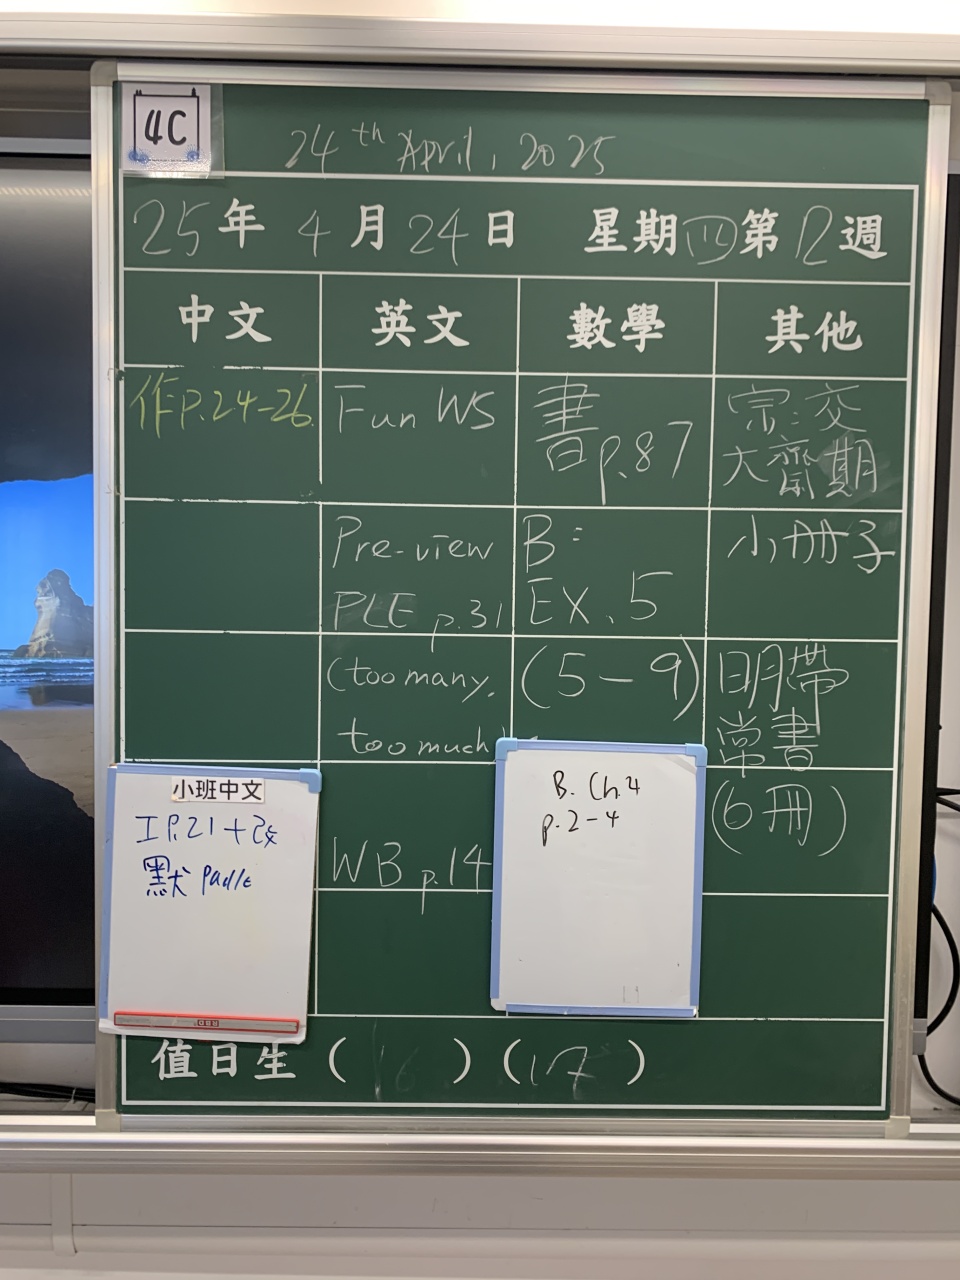 4C
24th April, 2025
25年 4月24日 星期四第12週
中文 英文 數學 其他
作P.24-26
Fun WS
Pre-view
PLE p.31
(too many,
too much)
WB p.14
書
p.87
B:
EX.5
(5-9)
宗:交
大齋期
小冊子
明帶
常書
(6冊)
小班中文
工P.21+改
默
B. Ch.4
p.2-4
值日生 (16) (17)